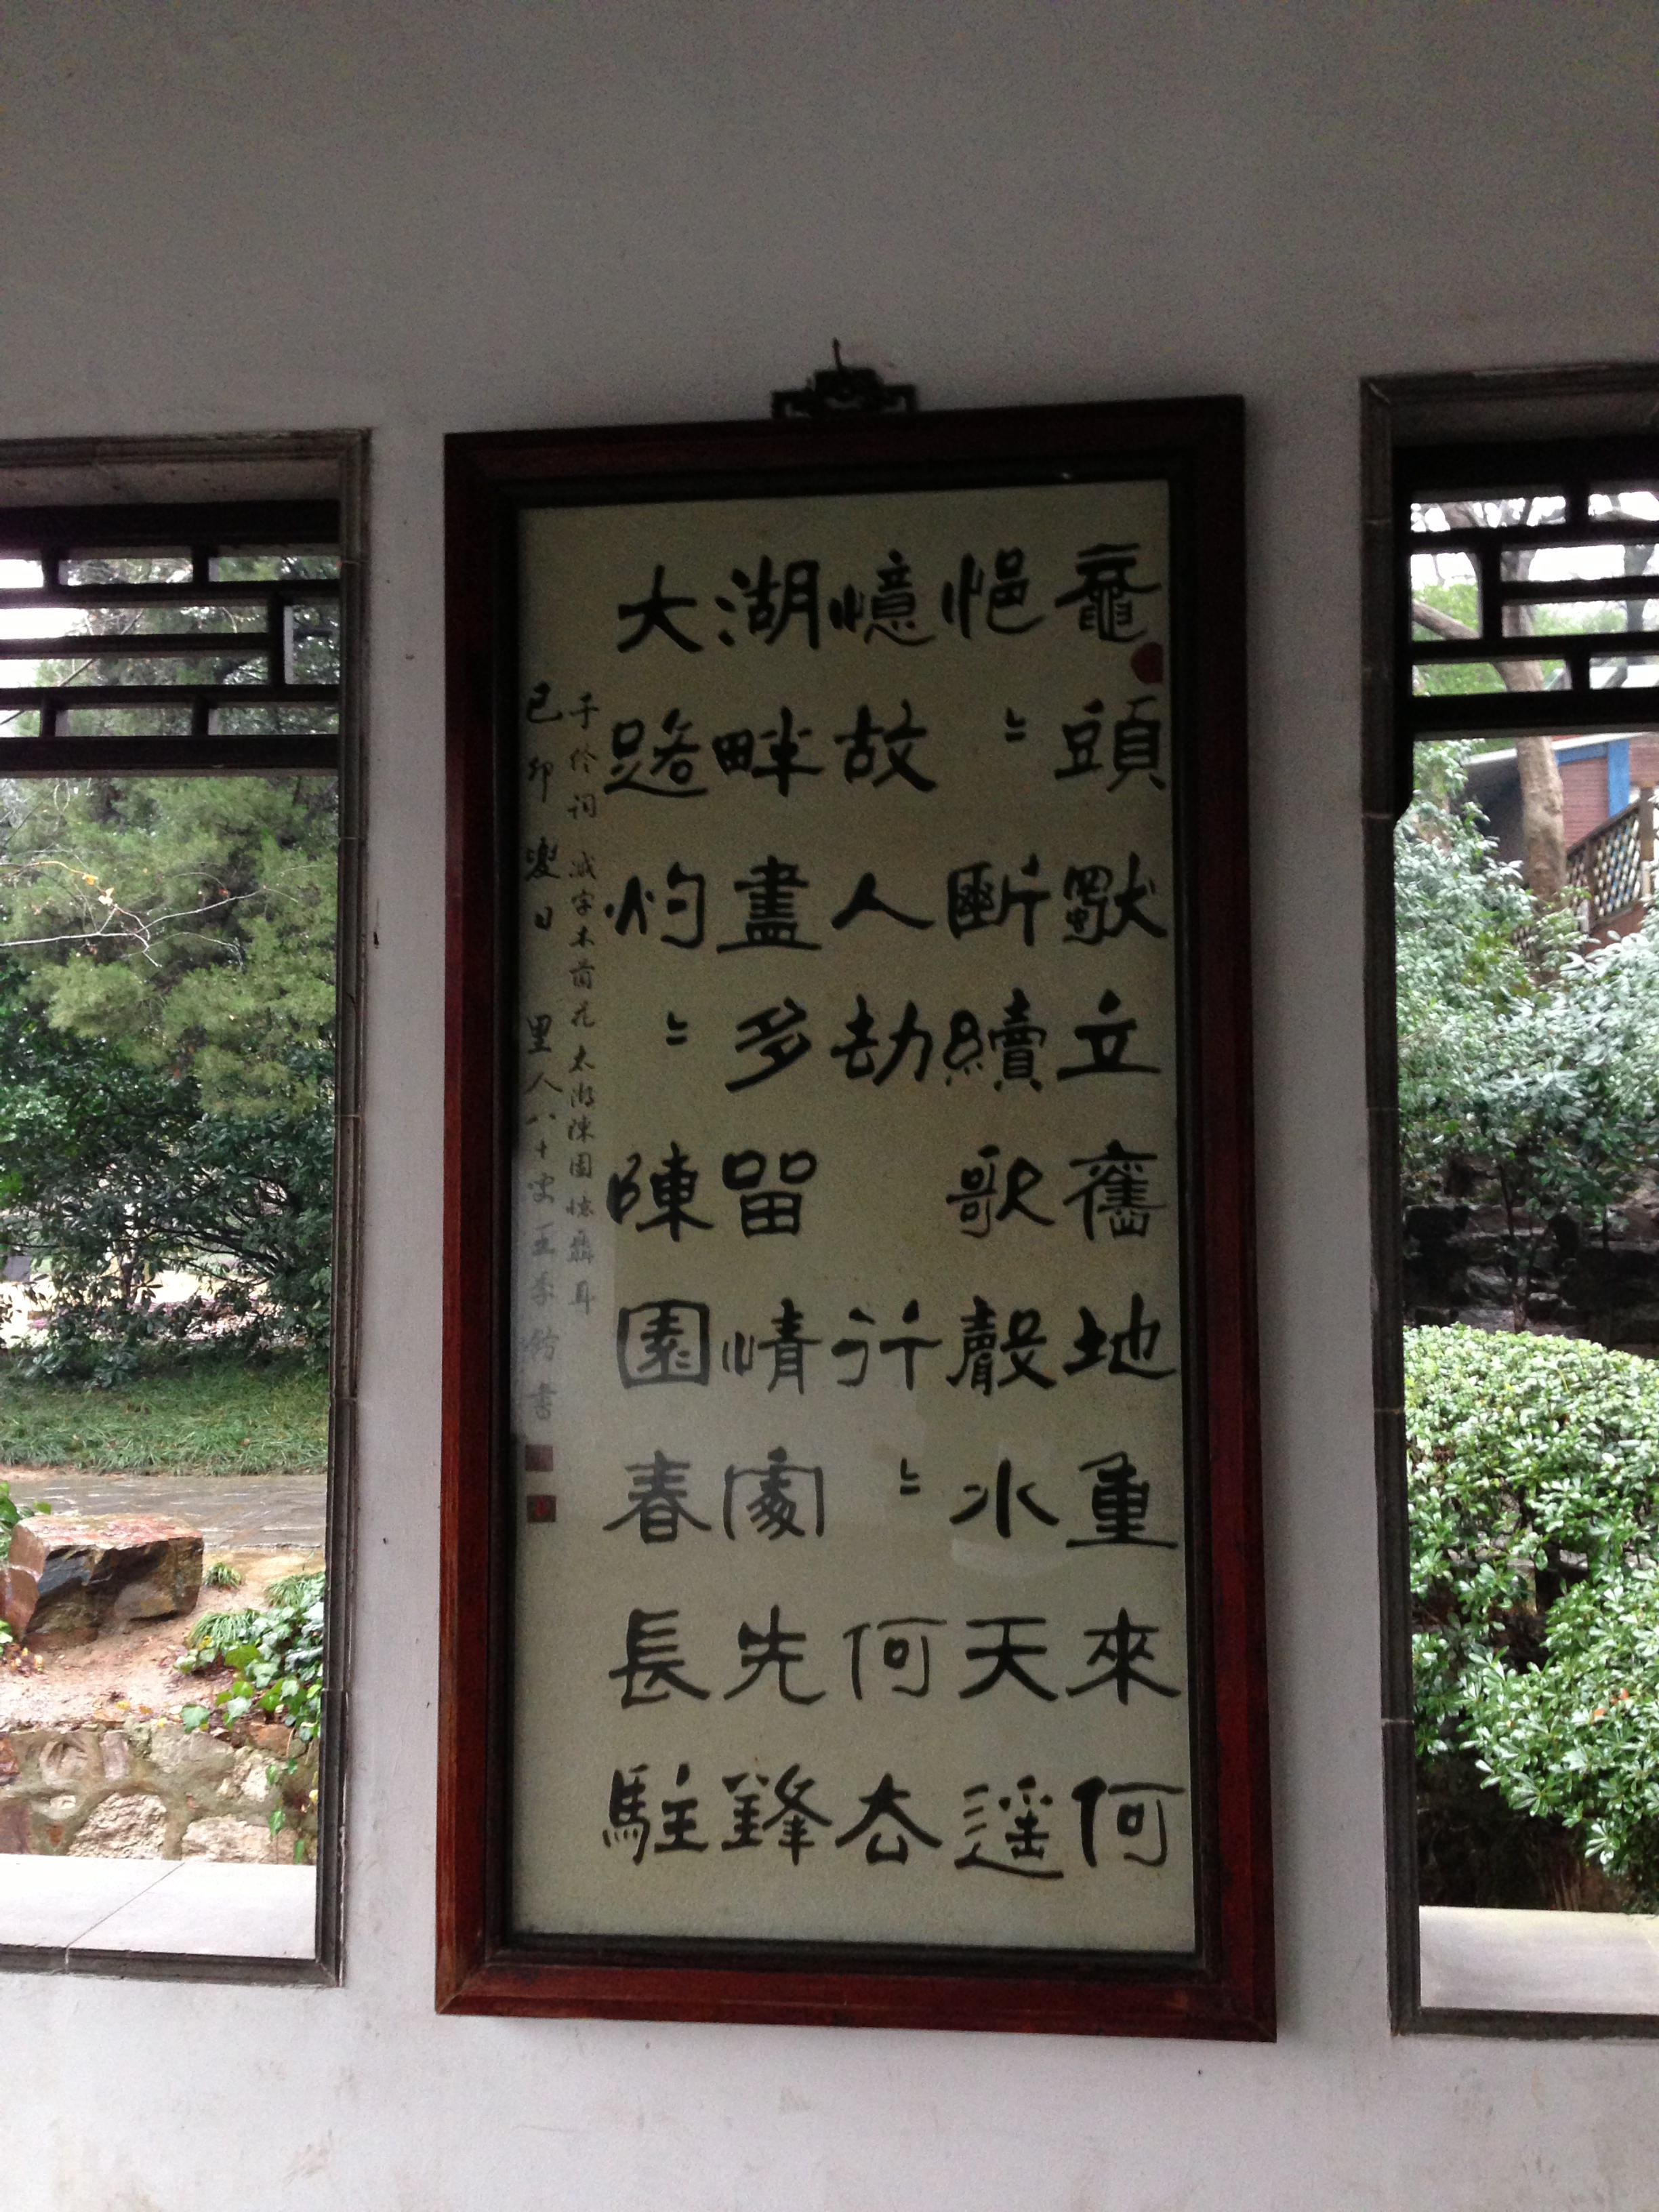 黿頭獨立舊地重來何
悒〻斷續歌聲水天遥
憶故人劫　行〻何厺
湖畔盡多留情處先鋒
大路灼〻陳園春長駐
于伶词 減字木蘭花 太湖陳園憶聶耳
己卯夏日 里人八十叟王 書